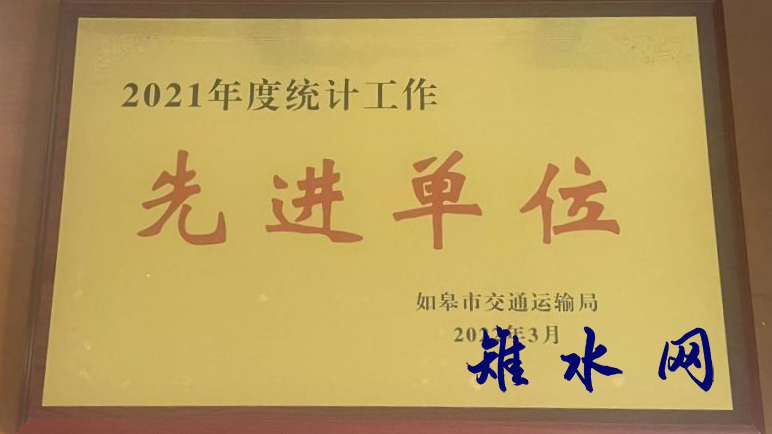 2021年度统计工作
先进单位
如皋市交通运输局
2022年3月
雉水网